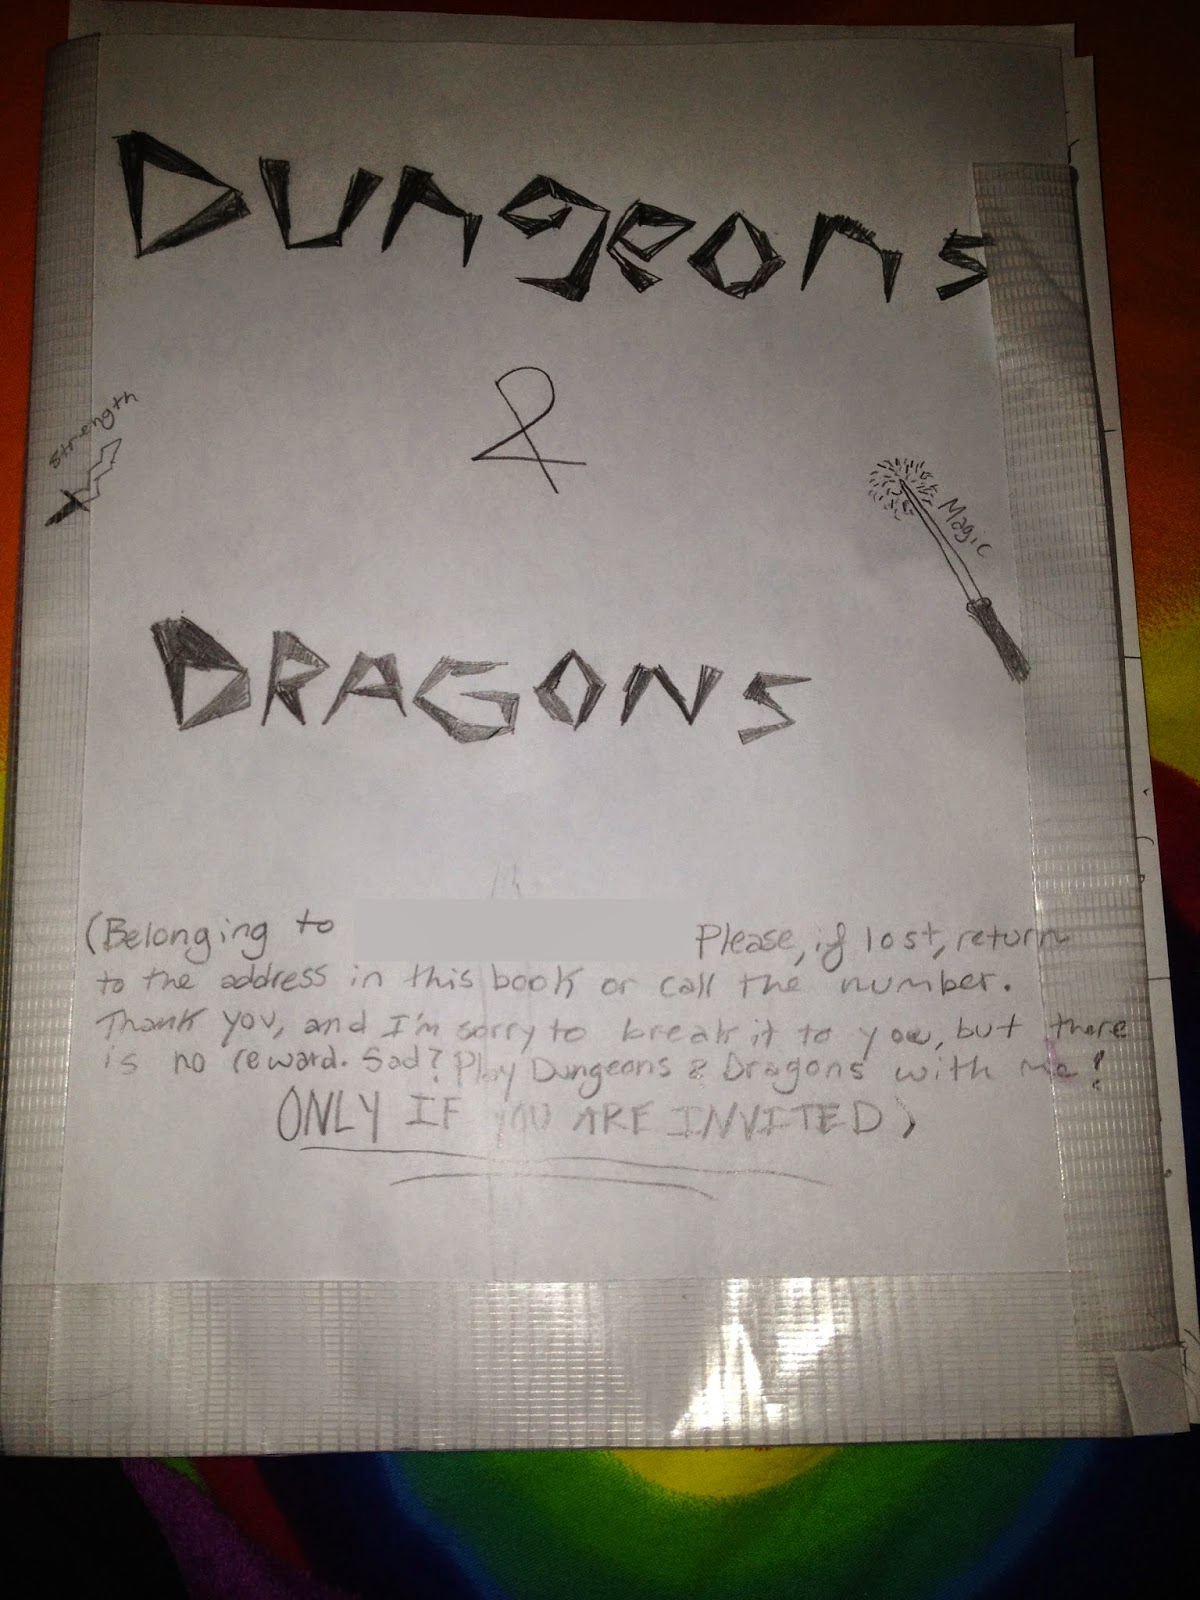 Dungeons
&
DRAGONS
Strength
Magic
(Belonging to Please, if lost, return
to the address in this book or call the number.
Thank you, and I'm sorry to break it to you, but there
is no reward. Sad? Play Dungeons & Dragons with me!
ONLY IF YOU ARE INVITED)